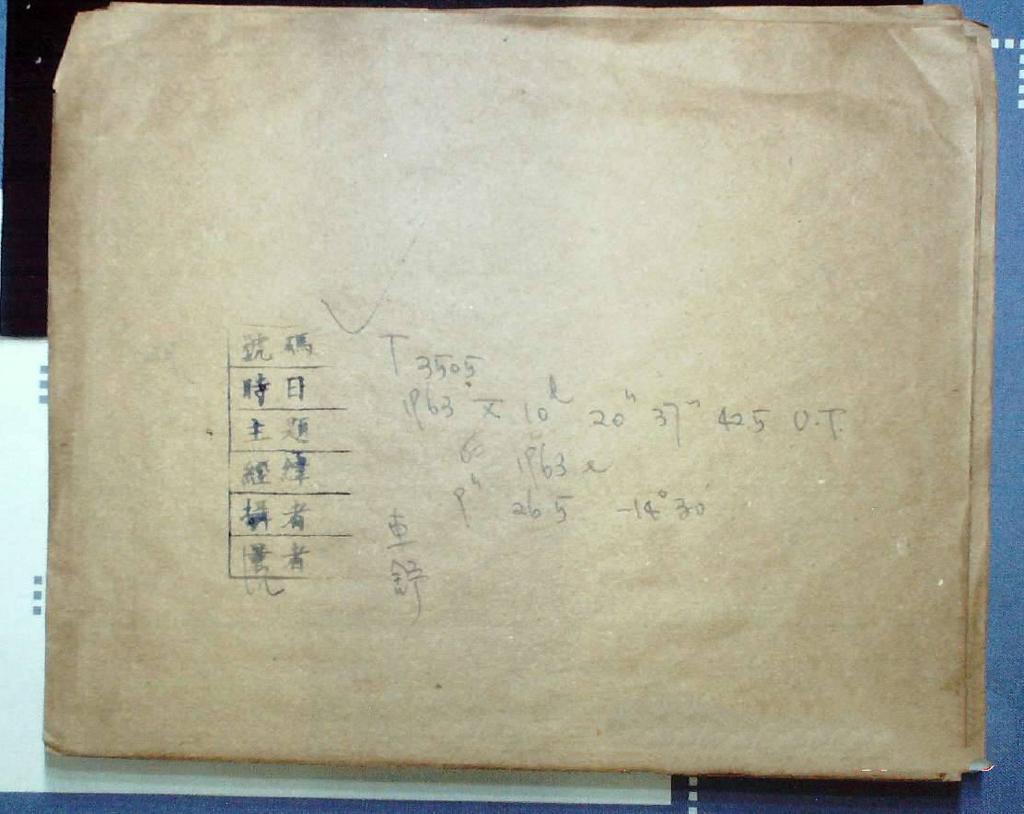 號碼 T 3505
時日 1963 X 10d 20h 37m 425 U.T.
主題 1963 e
經緯 9h 26.5 -14° 30'
攝者 車
量者 舒